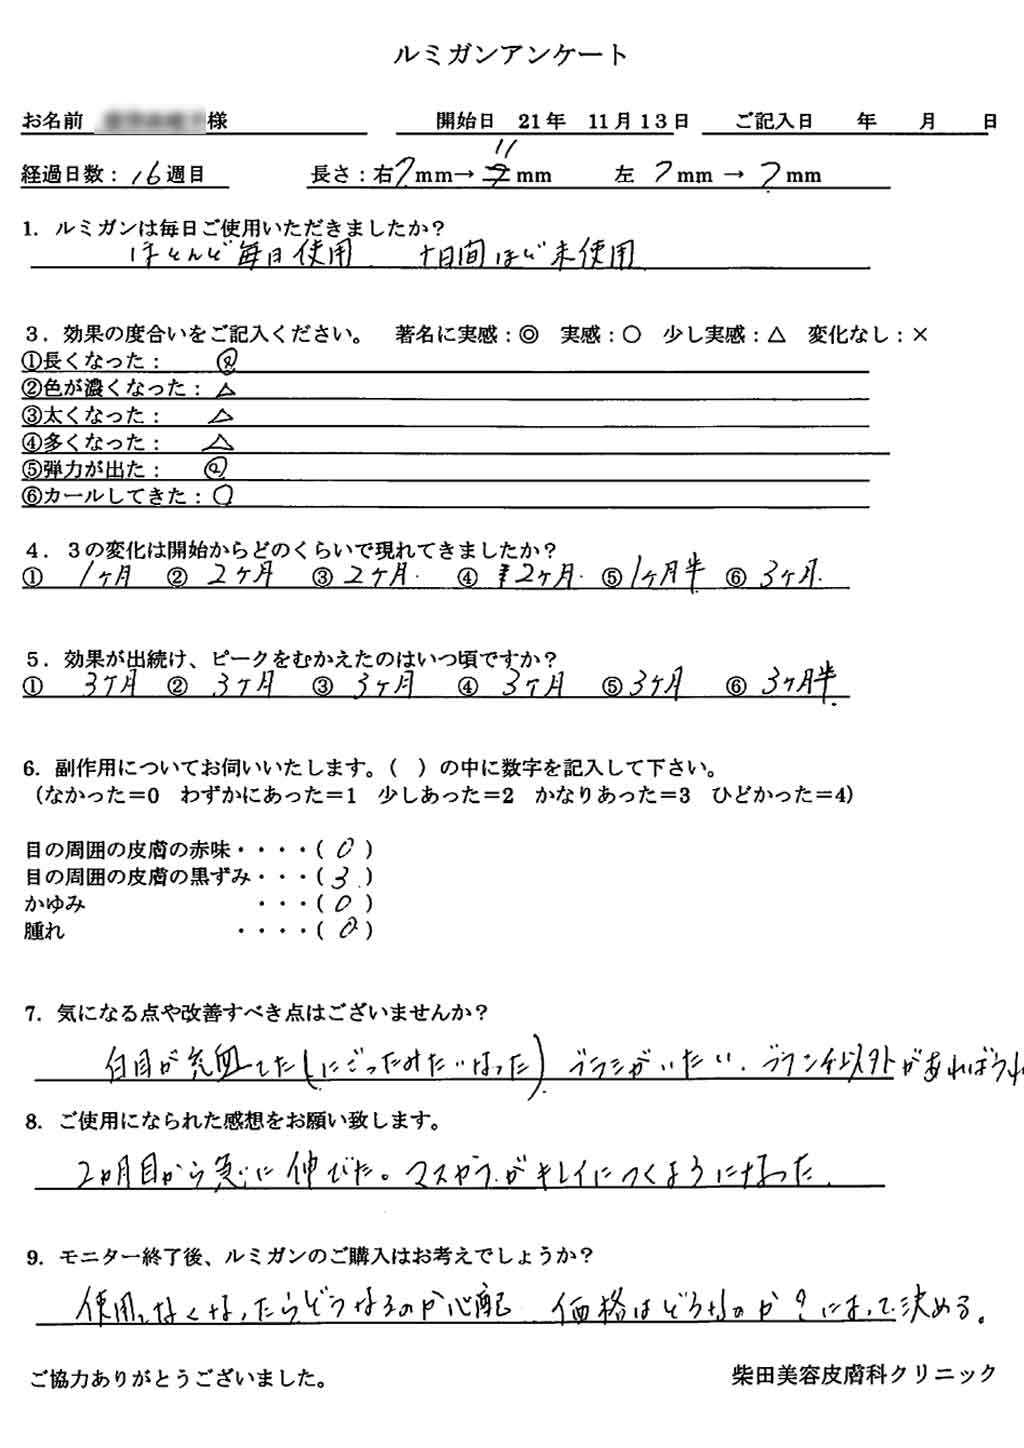 ルミガンアンケート
お名前 様 開始日 21年 11月13日 ご記入日 年 月 日
11
経過日数：16週目 長さ：右7mm→7mm 左 7mm → 7mm
1. ルミガンは毎日ご使用いただきましたか？
ほとんど毎日使用 十日間ほど未使用
3．効果の度合いをご記入ください。 著名に実感：◎ 実感：○ 少し実感：△ 変化なし：×
①長くなった： ◎
②色が濃くなった：△
③太くなった： △
④多くなった： △
⑤弾力が出た： ◎
⑥カールしてきた：○
4．3の変化は開始からどのくらいで現れてきましたか？
① 1ヶ月 ② 2ヶ月 ③ 2ヶ月 ④ 2ヶ月 ⑤ 1ヶ月半 ⑥ 3ヶ月
5．効果が出続け、ピークをむかえたのはいつ頃ですか？
① 3ヶ月 ② 3ヶ月 ③ 3ヶ月 ④ 3ヶ月 ⑤ 3ヶ月 ⑥ 3ヶ月半
6. 副作用についてお伺いいたします。（ ）の中に数字を記入して下さい。
（なかった＝0 わずかにあった＝1 少しあった＝2 かなりあった＝3 ひどかった＝4）
目の周囲の皮膚の赤味・・・・( 0 )
目の周囲の皮膚の黒ずみ・・・( 3 )
かゆみ ・・・( 0 )
腫れ ・・・・( 0 )
7. 気になる点や改善すべき点はございませんか？
白目が充血してた(にごったみたいなった) ブラシがいたい. ブラシ以外があればうれ
8. ご使用になられた感想をお願い致します。
2カ月目から急に伸びた。マスカラがキレイにつくようになった.
9. モニター終了後、ルミガンのご購入はお考えでしょうか？
使用しなくなったらどうなるのか心配 価格はどうなのか？によって決める。
ご協力ありがとうございました。 柴田美容皮膚科クリニック